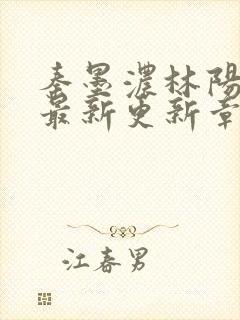 秦墨濃林陽
最新更新章
江春男